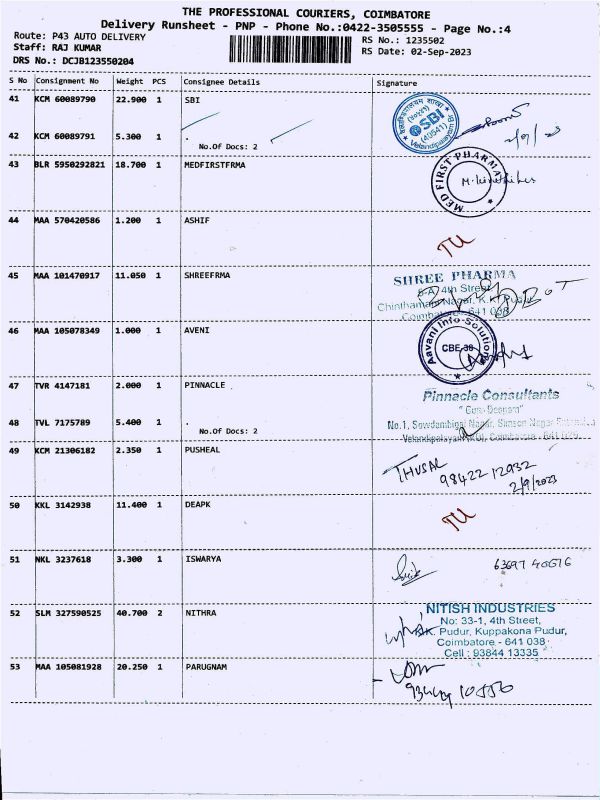 THE PROFESSIONAL COURIERS, COIMBATORE
Delivery Runsheet - PNP - Phone No.:0422-3505555 - Page No.:4
Route: P43 AUTO DELIVERY
RS No.: 1235502
Staff: RAJ KUMAR
RS Date: 02-Sep-2023
DRS No.: DCJB123550204
S No Consignment No Weight PCS Consignee Details Signature
41 KCM 60089790 22.900 1 SBI
SBI
(40541)
42 KCM 60089791 5.300 1 .
No.Of Docs: 2
2/9/23
43 BLR 5950292821 18.700 1 MEDFIRSTFRMA
MED FIRST PHARMA
44 MAA 570420586 1.200 1 ASHIF
45 MAA 101470917 11.050 1 SHREEFRMA
SHREE PHARMA
4th Street
46 MAA 105078349 1.000 1 AVENI
Aavani Info Solution
CBE-38
47 TVR 4147181 2.000 1 PINNACLE
Pinnacle Consultants
48 TVL 7175789 5.400 1 .
No.Of Docs: 2
49 KCM 21306182 2.350 1 PUSHEAL
THUSAL
98422 12932
2/9/2023
50 KKL 3142938 11.400 1 DEAPK
51 NKL 3237618 3.300 1 ISWARYA
52 SLM 327590525 40.700 2 NITHRA
NITISH INDUSTRIES
No: 33-1, 4th Street,
K.K. Pudur, Kuppakona Pudur,
Coimbatore - 641 038.
Cell : 93844 13335
53 MAA 105081928 20.250 1 PARUGNAM